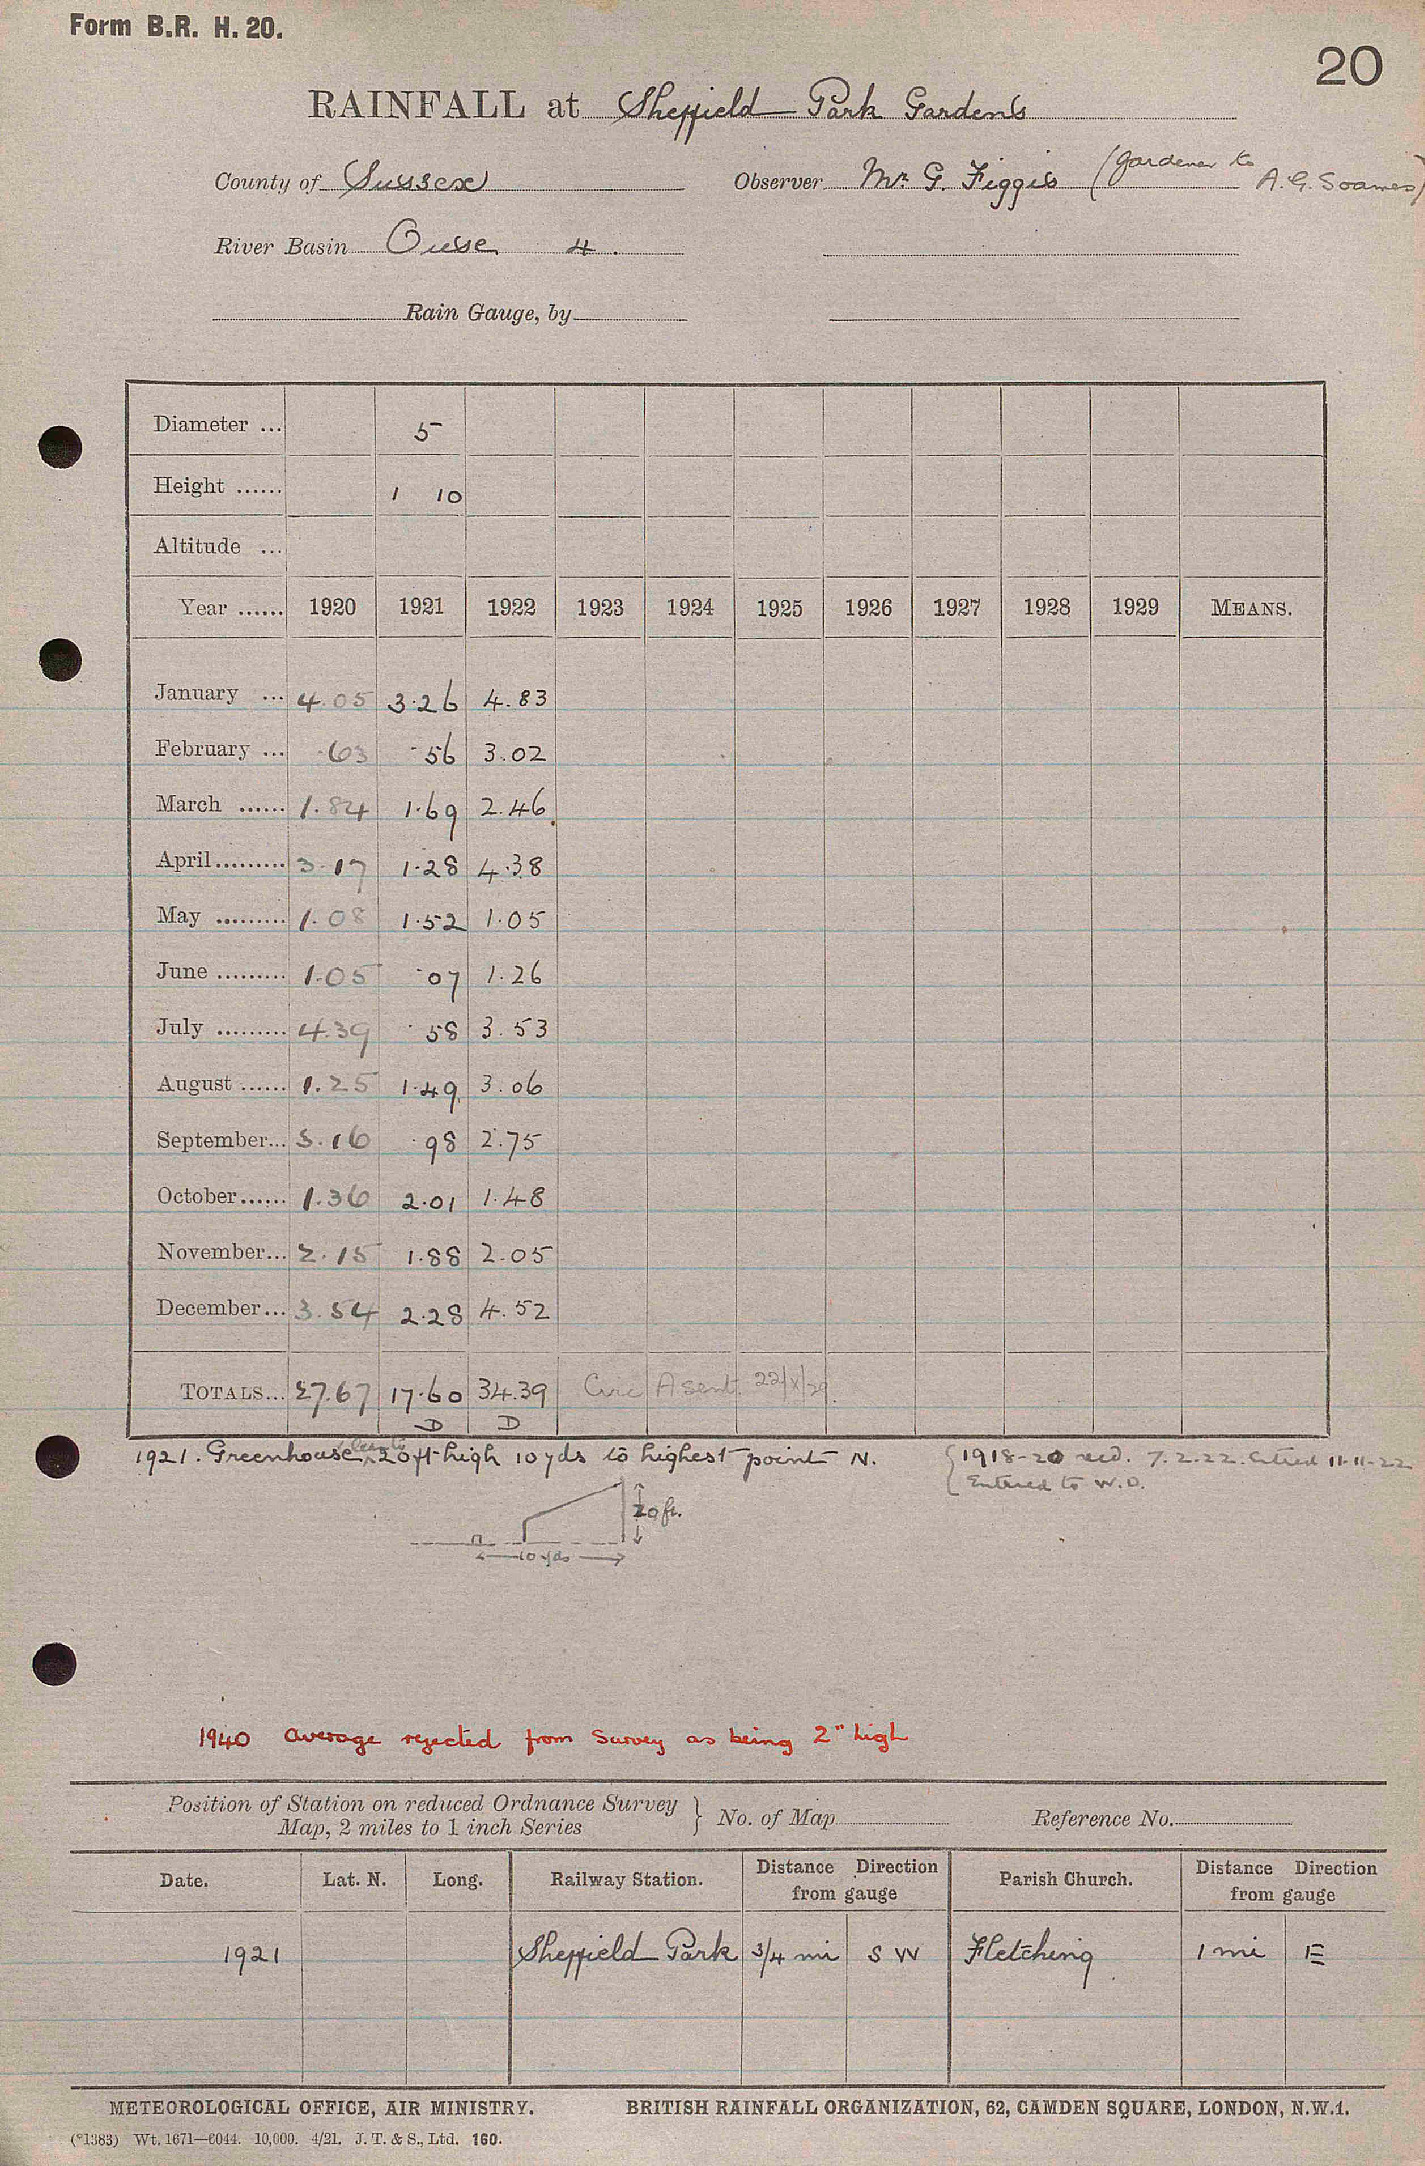 Form B.R. H. 20.
20
RAINFALL at Sheffield Park Gardens
County of Sussex Observer Mr. G. Figgis (gardener to A.G. Soames)
River Basin Ouse 4.
Rain Gauge, by
Diameter ... 5
Height ...... 1 10
Altitude ...
Year ...... 1920 1921 1922 1923 1924 1925 1926 1927 1928 1929 MEANS.
January ... 4.05 3.26 4.83
February ... .63 .56 3.02
March ...... 1.84 1.69 2.46
April ......... 3.17 1.28 4.38
May ......... 1.08 1.52 1.05
June ......... 1.05 .07 1.26
July ......... 4.39 .58 3.53
August ...... 1.25 1.49 3.06
September... 3.16 .98 2.75
October...... 1.36 2.01 1.48
November... 2.15 1.88 2.05
December... 3.54 2.28 4.52
TOTALS... 27.67 17.60 34.39 Circ A sent 22/X/29.
D D
1921. Greenhouse (lean to) 20 ft high 10 yds to highest point N. {1918-20 recd. 7.2.22. Entered 11-11-22
Entered to W.O.
20 ft.
10 yds
1940 average rejected from Survey as being 2" high
Position of Station on reduced Ordnance Survey Map, 2 miles to 1 inch Series } No. of Map Reference No.
Date. Lat. N. Long. Railway Station. Distance Direction from gauge Parish Church. Distance Direction from gauge
1921 Sheffield Park 3/4 mi S W Fletching 1 mi E
METEOROLOGICAL OFFICE, AIR MINISTRY. BRITISH RAINFALL ORGANIZATION, 62, CAMDEN SQUARE, LONDON, N.W.1.
(*1383) Wt. 1671—6044. 10,000. 4/21. J. T. & S., Ltd. 160.